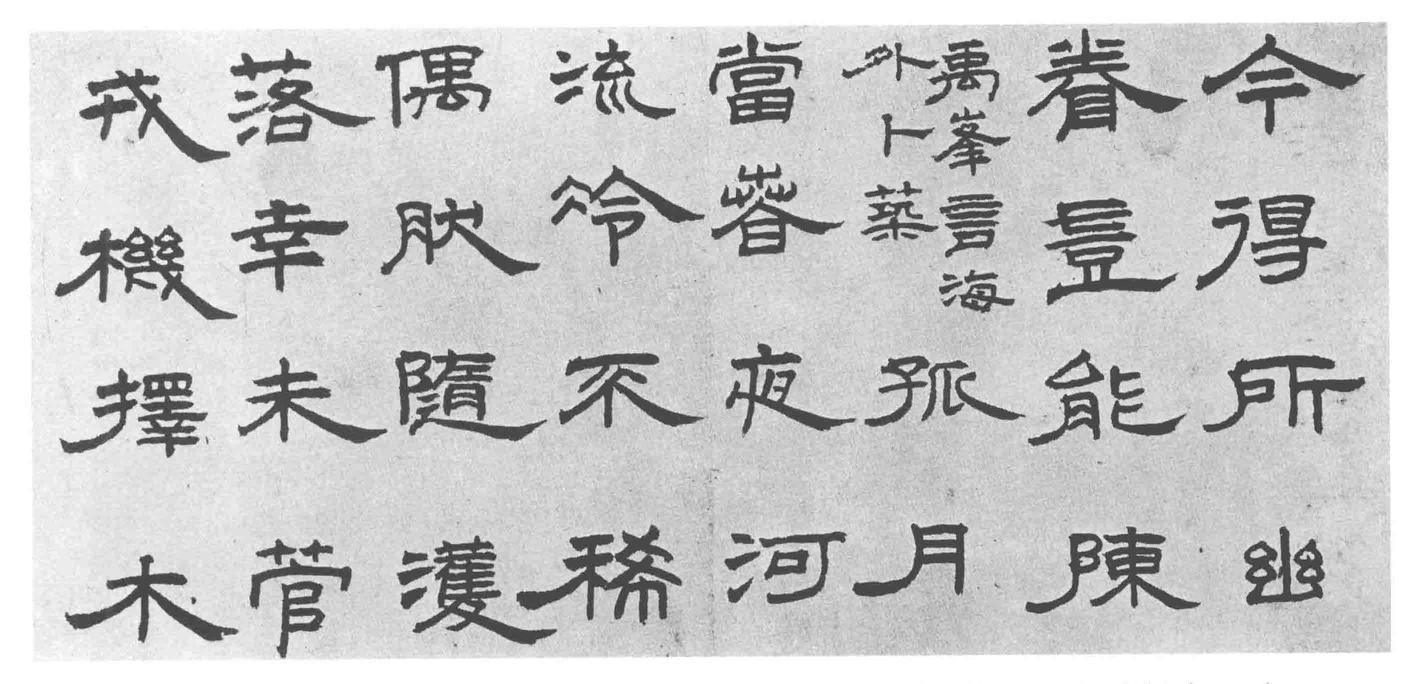 今得所幽
眷豈能陳
禹峯言海
外卜築
孤月
當萅夜河
流冷不稀
偶肰隨濩
落幸未菅
戎機擇木